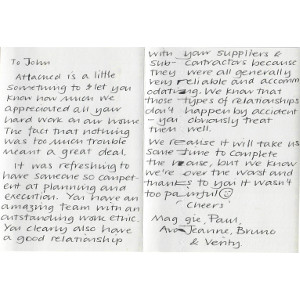 To John
Attached is a little
something to let you
know how much we
appreciated all your
hard work on our home
The fact that nothing
was too much trouble
meant a great deal.
It was refreshing to
have someone so compet-
ent at planning and
execution. You have an
amazing team with an
outstanding work ethic.
You clearly also have
a good relationship
with your suppliers &
sub-contractors because
they were all generally
very reliable and accomm
odating. We know that
these types of relationships
don't happen by accident
- you obviously treat
them well.
We realise it will take us
some time to complete
the house, but we know
we're over the worst and
thanks to you it wasn't
too painful ☺
'Cheers'
Maggie, Paul,
Jeanne, Bruno
& Venty